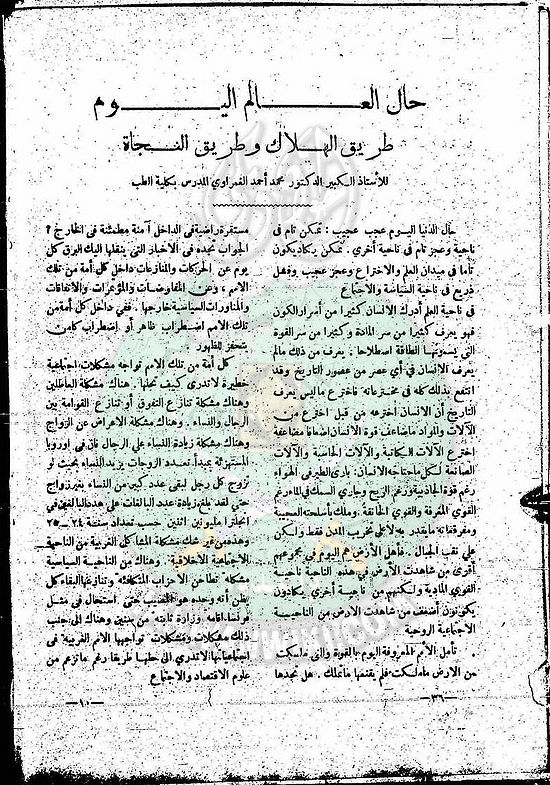 حال العـــالم اليـــوم
طريق الهلاك وطريق النجاة
للأستاذ الكبير الدكتور محمد أحمد الغمراوي المدرس بكلية الطب
حال الدنيا اليوم عجب عجيب : تمكن تام في
ناحية وعجز تام في ناحية أخري . تمكن يكاد يكون
تاما في ميدان العلم والاختراع وعجز عجيب وفشل
ذريع في ناحية السياسة والاجتماع
في ناحية العلم أدرك الانسان كثيرا من أسرار الكون
فهو يعرف كثيرا من سر المادة وكثيرا من سر القوة
التي يسمونها الطاقة اصطلاحا . يعرف من ذلك مالم
يعرف الانسان في أي عصر من عصور التاريخ وقد
انتفع بذلك كله في مخترعاته فاخترع ما ليس يعرف
التاريخ أن الانسان اخترعه من قبل اخترع من
الآلات والمواد ما ضاعف قوة الانسان اضعافا مضاعفة
اخترع الآلات السكاتبة والآلات الحاسبة والآلات
الصانعة لكل ما يحتاجه الانسان : بارى الطير في الهواء
رغم قوة الجاذبية وزعزع الريح وجارى السمك في الماء رغم
القوى المغرقة والقوي الخانقة . وملك بأسلحته العجيبة
ومفرقعاته ما يقدر به لا على تخريب المدن فقط ولكن
على نقب الجبال . فأهل الأرض هم اليوم في مجموعهم
أقوى من شاهدت الأرض في هذه الناحية ناحية
القوى المادية ولكنهم من ناحية أخري يكادون
يكونون أضعف من شاهدت الارض من الناحيـة
الاجتماعية الروحية
تأمل الأمم المعروفة اليوم بالقوة والتي ملكت
من الارض ما ملكت فلم يقنعها ما تملك . هل تجدها
مستقرة راضية في الداخل آمنة مطمئنة في الخارج ؟
الجواب تجده في الاخبار التي ينقلها اليك البرق كل
يوم عن الحركات والمنازعات داخل كل أمة من تلك
الامم ، وعن المفاوضات والمؤتمرات والاتفاقات
والمناورات السياسية خارجها . ففي داخل كل أمة من
تلك الامم اضطراب ظاهر أو اضطراب كامن
يتحفز للظهور
كل أمة من تلك الامم تواجه مشكلات اجتماعية
خطيرة لا تدرى كيف تحلها . هناك مشكلة العاطلين
وهناك مشكلة تنازع التفوق أو تنازع القوامة بين
الرجال والنساء . وهناك مشكلة الاعراض عن الزواج
وهناك مشكلة زيادة النساء على الرجال فان في أوروبا
المستهزئة بمبدأ تعدد الزوجات يزيد النساء بحيث لو
تزوج كل رجل لبقى عدد كبير من النساء بغير زواج
حتى لقد بلغ زيادة عدد البالغات على عدد البالغين في
انجلترا مليونين اثنين حسب تعداد سنة ٢٤ — ٢٥
وهذه من غير شك مشكلة المشاكل الغربية من الناحية
الاجتماعية الأخلاقية . وهناك من الناحية السياسية
مشكلة تطاحن الاحزاب المتكافئة وتنازعها البقاء كل
يظن أنه وحده هو المصيب حتى استحال في مثـل
فرنسا اقامة وزارة ثابتة من سنين وهناك الى جنب
ذلك مشكلات ومشكلات تواجهها الامم الغربيه في
اجتماعياتها لا تدرى الى حلها طريقا رغم ما تزعم من
علوم الاقتصاد والاجتماع
— ٣٦ —
— ١٠ —